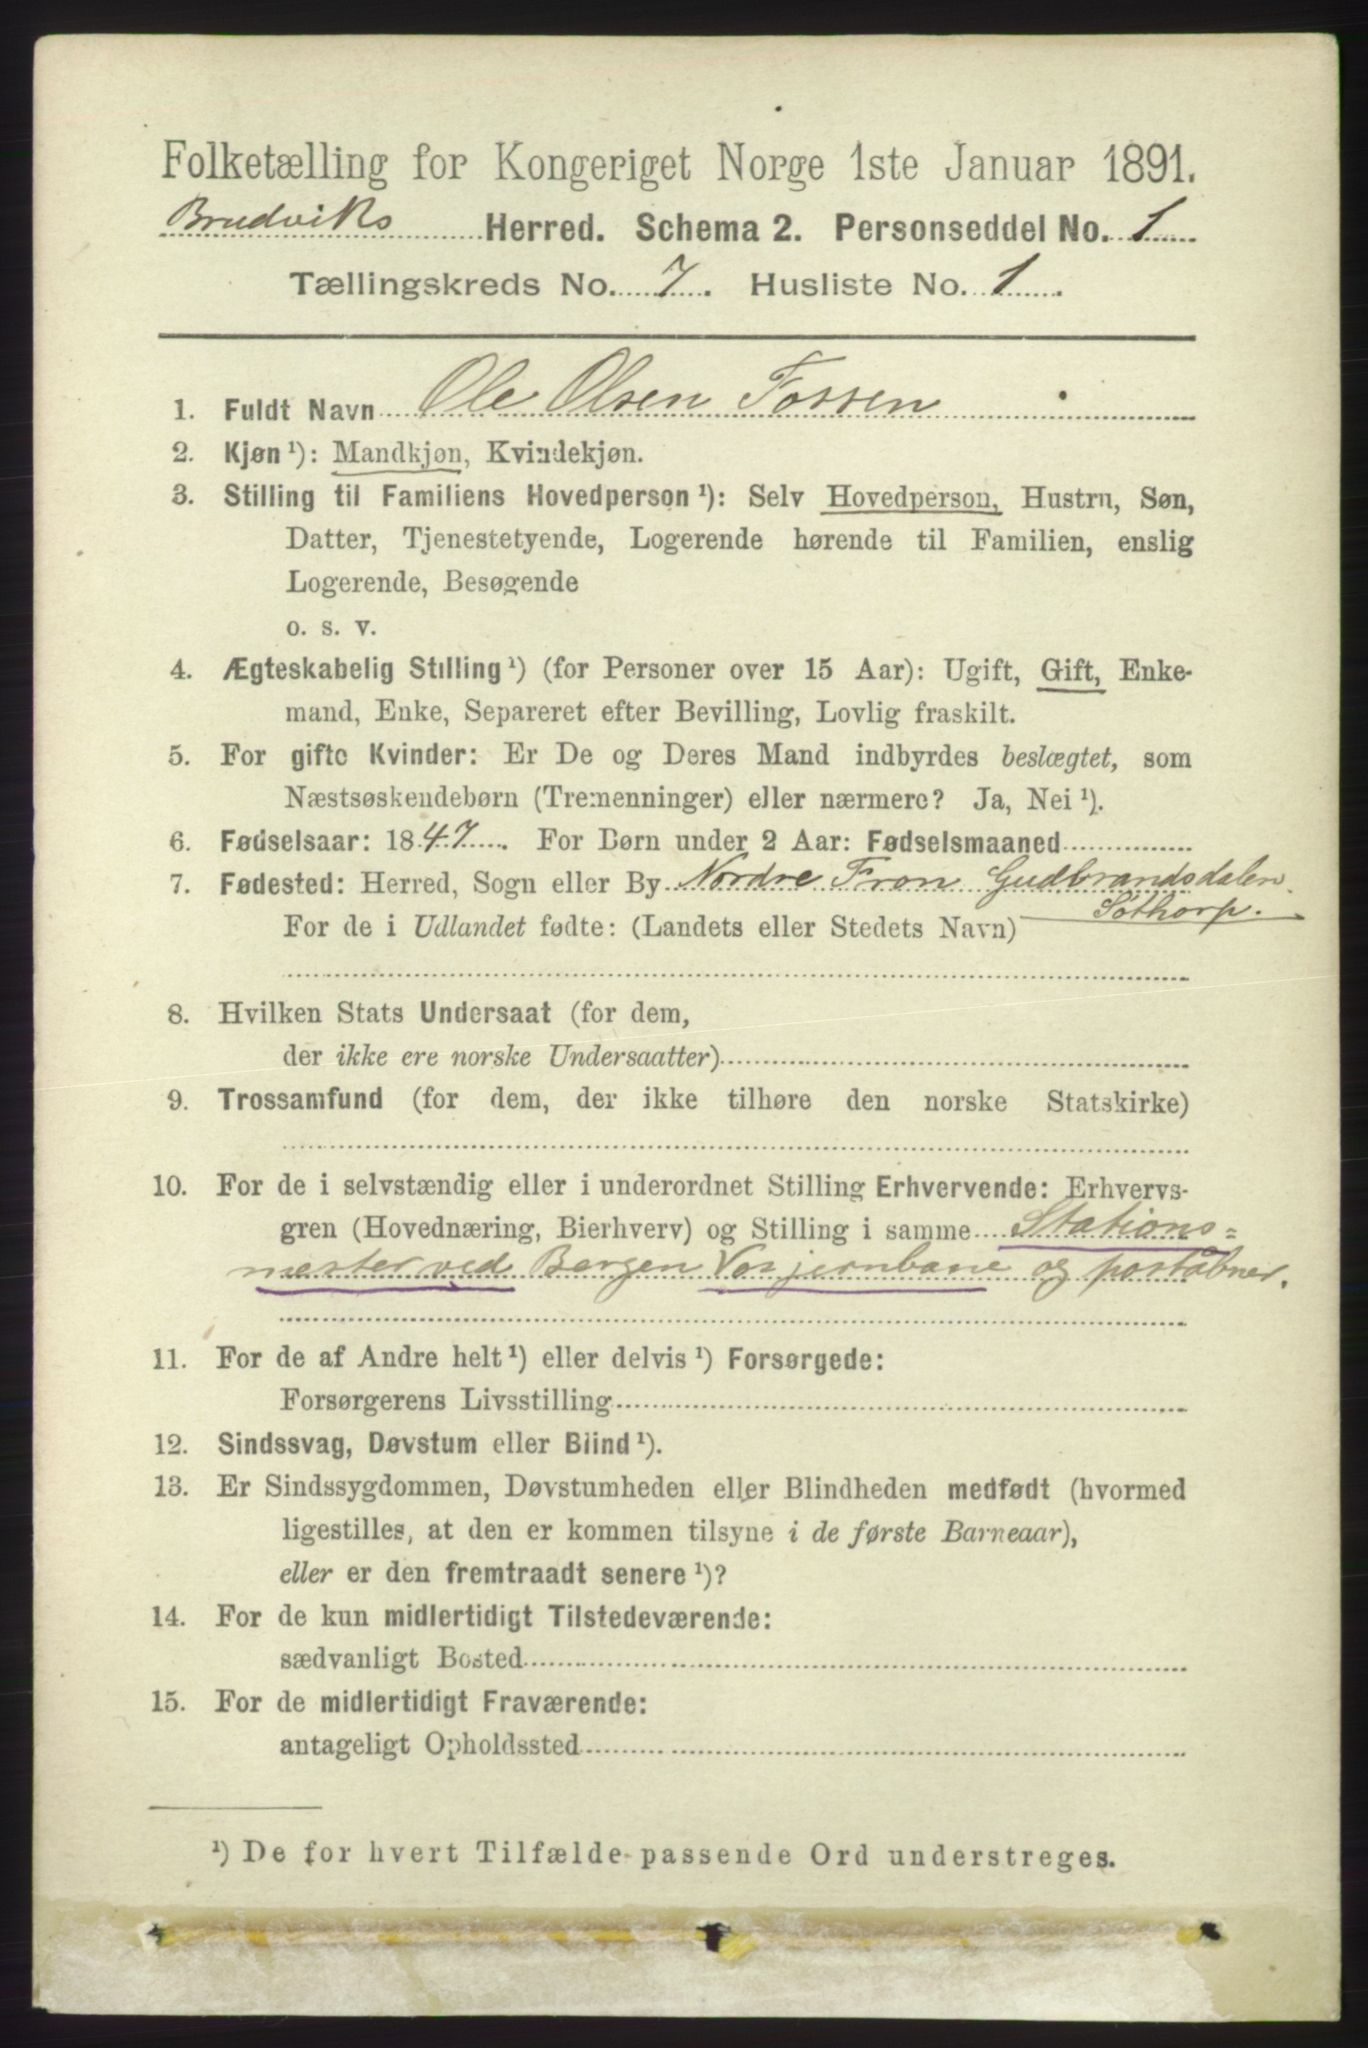 Folketælling for Kongeriget Norge 1ste Januar 1891.
Brudviks Herred. Schema 2. Personseddel No. 1
Tællingskreds No. 7. Husliste No. 1
1. Fuldt Navn Ole Olsen Fossen
2. Kjøn ¹): Mandkjøn, Kvindekjøn.
3. Stilling til Familiens Hovedperson ¹): Selv Hovedperson, Hustru, Søn,
Datter, Tjenestetyende, Logerende hørende til Familien, enslig
Logerende, Besøgende
o. s. v.
4. Ægteskabelig Stilling ¹) (for Personer over 15 Aar): Ugift, Gift, Enke-
mand, Enke, Separeret efter Bevilling, Lovlig fraskilt.
5. For gifte Kvinder: Er De og Deres Mand indbyrdes beslægtet, som
Næstsøskendebørn (Tremenninger) eller nærmere? Ja, Nei ¹).
6. Fødselsaar: 1847. For Børn under 2 Aar: Fødselsmaaned
7. Fødested: Herred, Sogn eller By Nordre Fron Gudbrandsdalen.
Sothorp.
For de i Udlandet fødte: (Landets eller Stedets Navn)
8. Hvilken Stats Undersaat (for dem,
der ikke ere norske Undersaatter)
9. Trossamfund (for dem, der ikke tilhøre den norske Statskirke)
10. For de i selvstændig eller i underordnet Stilling Erhvervende: Erhvervs-
gren (Hovednæring, Bierhverv) og Stilling i samme Stations=
mester ved Bergen Vos jernbane og poståbner.
11. For de af Andre helt ¹) eller delvis ¹) Forsørgede:
Forsørgerens Livsstilling
12. Sindssvag, Døvstum eller Blind ¹).
13. Er Sindssygdommen, Døvstumheden eller Blindheden medfødt (hvormed
ligestilles, at den er kommen tilsyne i de første Barneaar),
eller er den fremtraadt senere ¹)?
14. For de kun midlertidigt Tilstedeværende:
sædvanligt Bosted
15. For de midlertidigt Fraværende:
antageligt Opholdssted
¹) De for hvert Tilfælde passende Ord understreges.